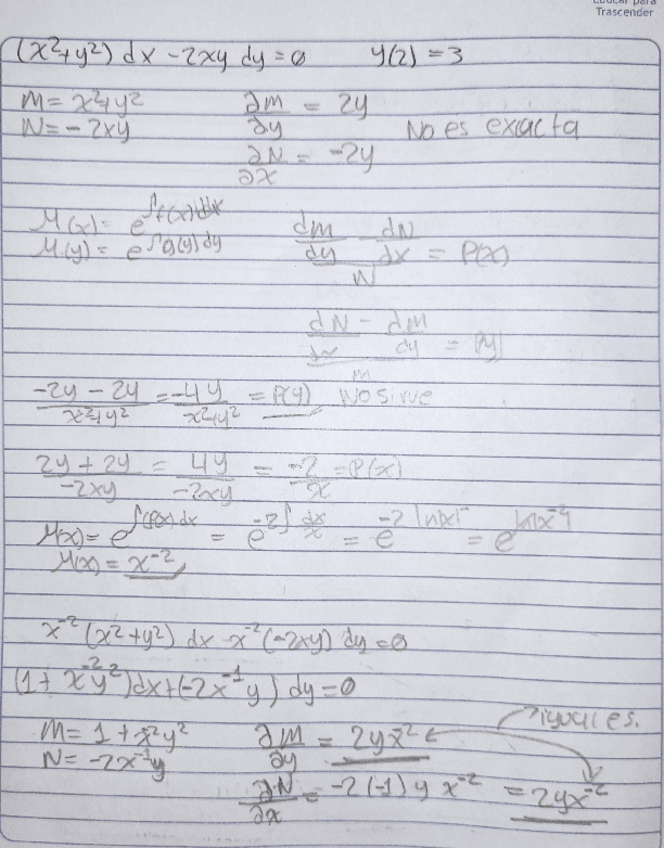 Educar para
Trascender
(x²+y²) dx - 2xy dy = 0 y(2) = 3
M = x²+y² ∂M/∂y = 2y
N = -2xy No es exacta
∂N/∂x = -2y
μ(x) = e^∫f(x)dx
μ(y) = e^∫g(y)dy
(dM/dy - dN/dx)/N = P(x)
(dN/dx - dM/dy)/M = P(y)
(-2y - 2y)/(x²+y²) = -4y/(x²+y²) = P(y) No sirve
(2y + 2y)/(-2xy) = 4y/(-2xy) = -2/x = P(x)
μ(x) = e^∫P(x)dx = e^(-2∫dx/x) = e^(-2 ln|x|) = e^(ln|x⁻²|)
μ(x) = x⁻²
x⁻² (x²+y²) dx - x⁻² (-2xy) dy = 0
(1 + x⁻²y²) dx + (-2x⁻¹y) dy = 0
M = 1 + x⁻²y² ∂M/∂y = 2yx⁻² iguales.
N = -2x⁻¹y
∂N/∂x = -2(-1) y x⁻² = 2yx⁻²